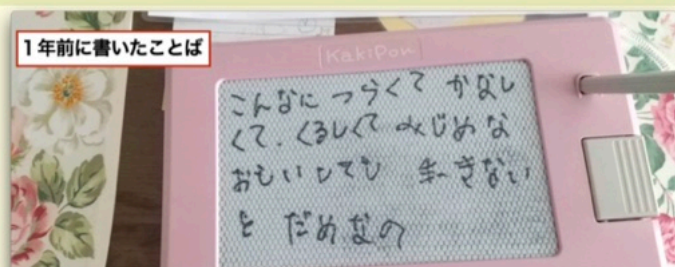 1年前に書いたことば
KakiPon
こんなに つらくて かなし
くて、くるしくて みじめな
おもいしても 生きない
と だめなの